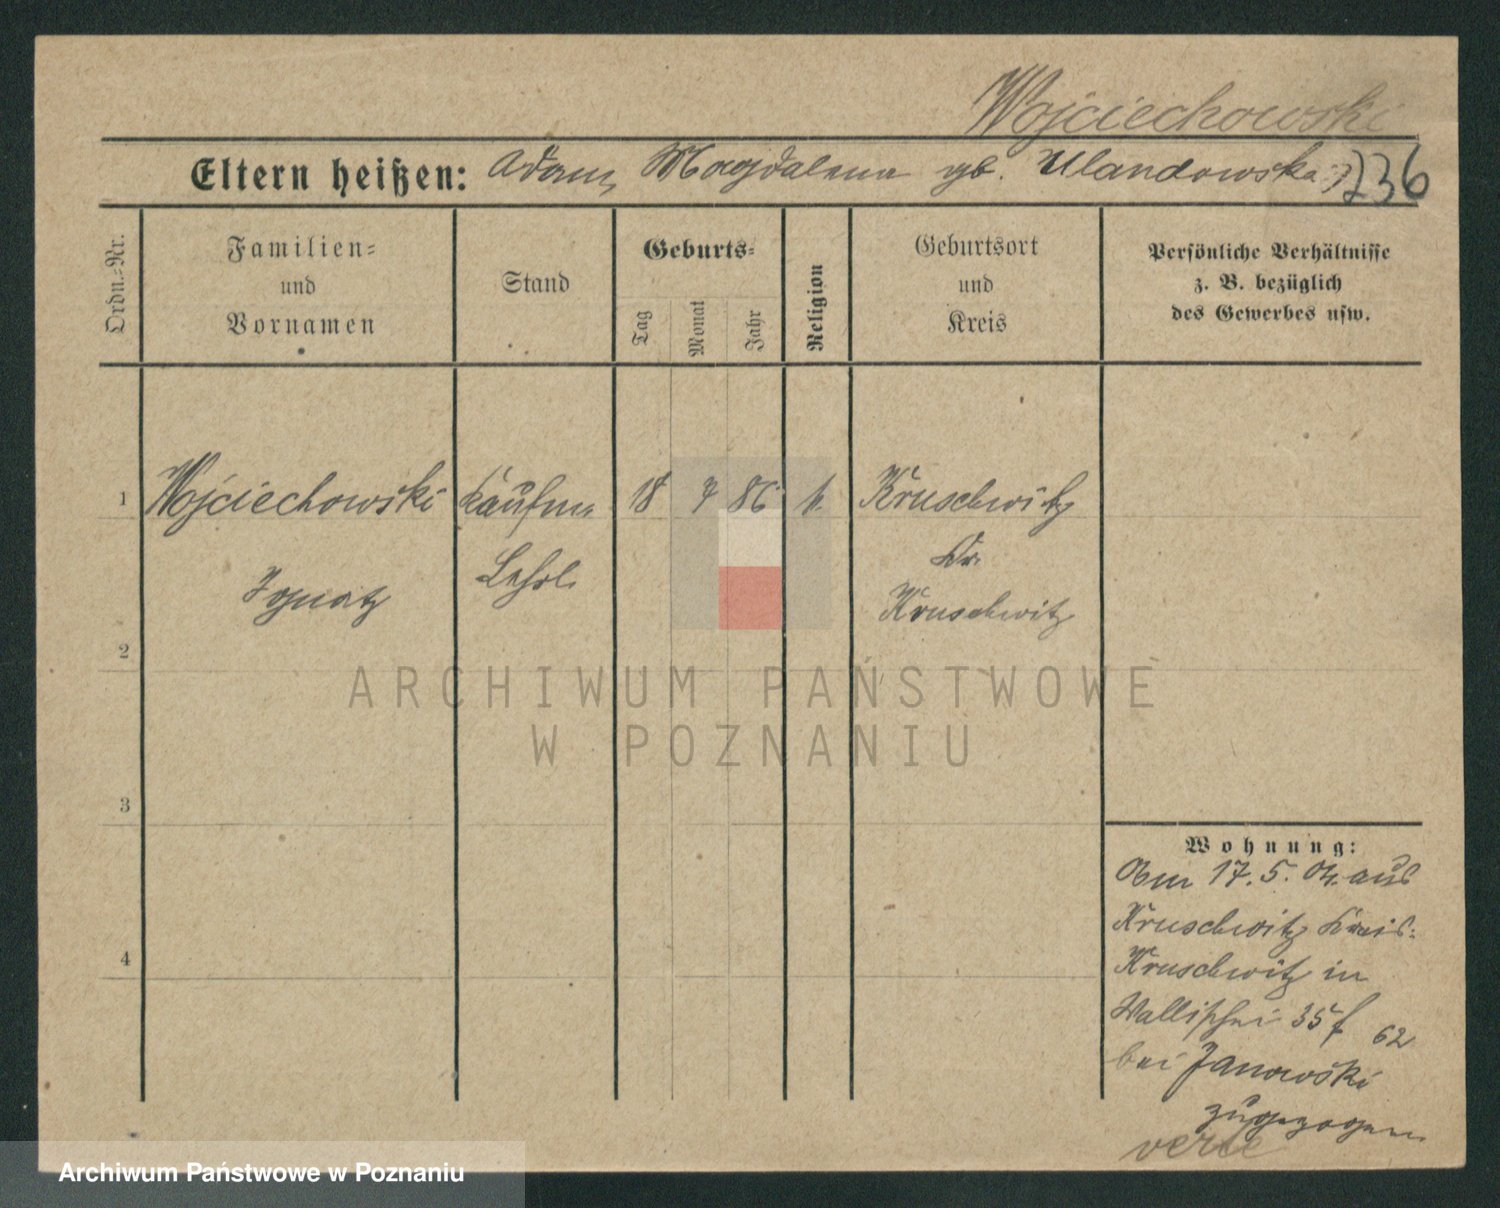 Wojciechowski
Eltern heißen: Adam, Magdalena gb. Ulandowska 236
Ordn.=Nr.
Familien=
und
Vornamen
Stand
Geburts=
Tag
Monat
Jahr
Religion
Geburtsort
und
Kreis
Persönliche Verhältnisse
z. B. bezüglich
des Gewerbes usw.
1 Wojciechowski Kaufm. 18 7 86 k. Kruschwitz
Lehrl. Kr.
Ignatz Kruschwitz
2
ARCHIWUM PAŃSTWOWE
W POZNANIU
3
4
Wohnung:
Am 17.5.04. aus
Kruschwitz Kreis:
Kruschwitz in
Wallischei 35 62
bei Janowski
zugezogen
verte
Archiwum Państwowe w Poznaniu